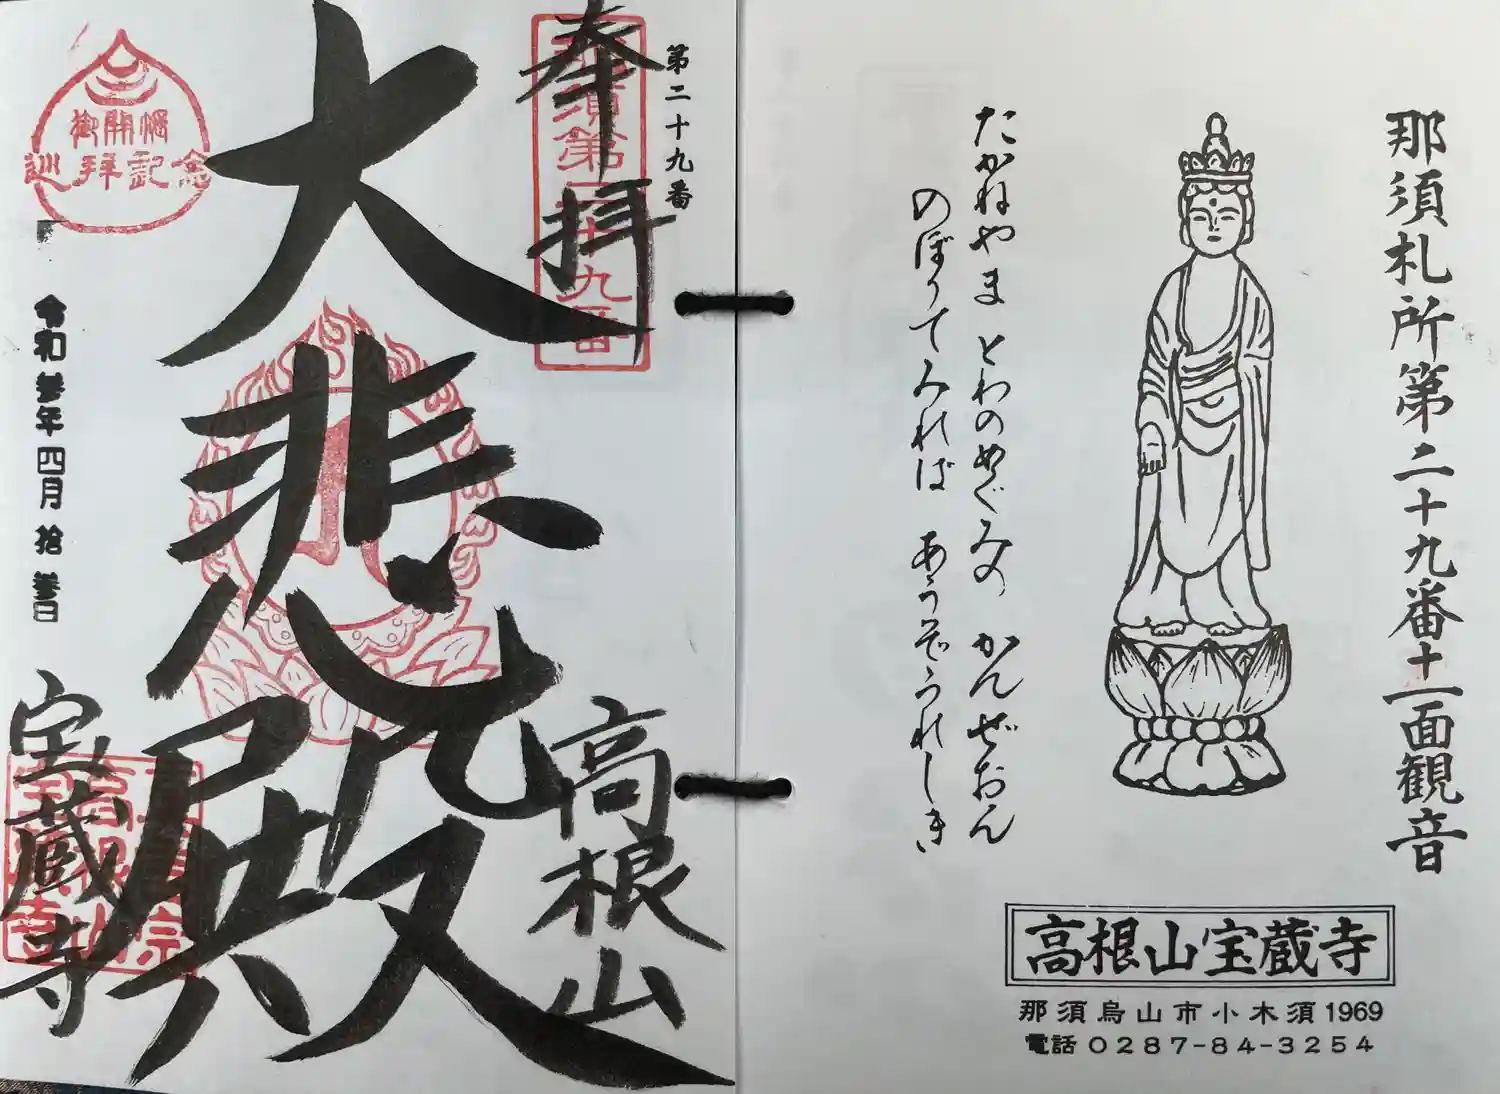 那須札所第二十九番十一面観音
たかねやま とわのめぐみの かんぜおん
のぼりてみれば あうぞうれしき
高根山宝蔵寺
那須烏山市小木須1969
電話 0287-84-3254
第二十九番
奉拝
那須第二十九番
大悲殿
高根山
宝蔵寺
御開帳
巡拝記念
令和参年四月拾参日